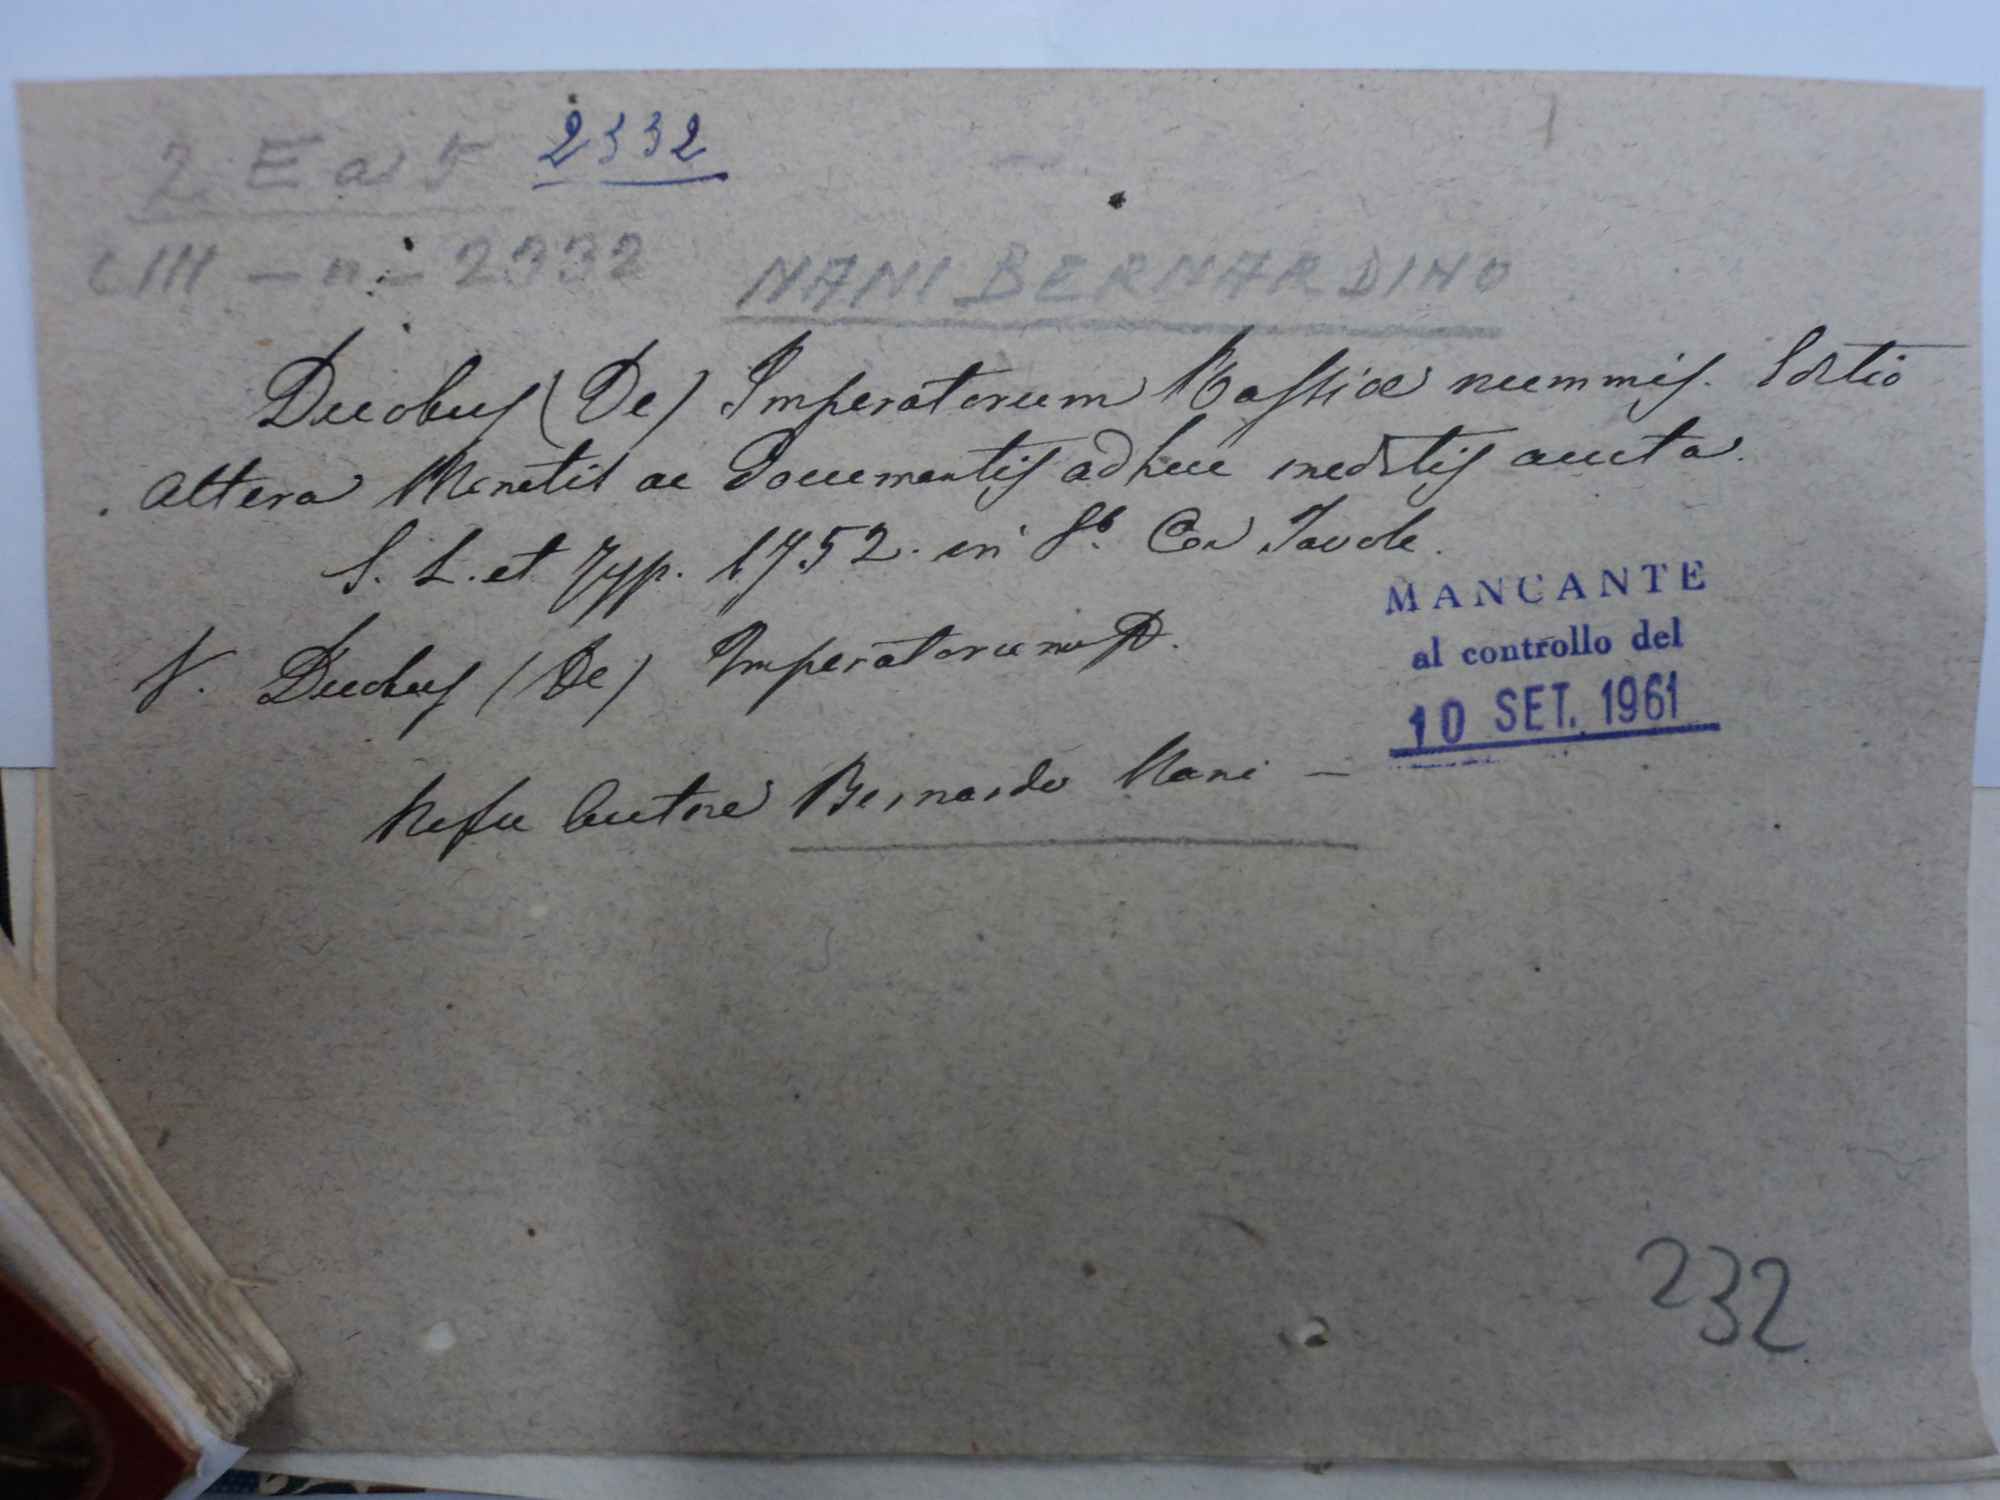 2 E a 5 2332
CIII - n - 2332 NANI BERNARDINO
Duobus (De) Imperatorum Rassiae nummis. Editio
altera Monetis ac Documentis adhuc ineditis aucta.
S. L. et Typ. 1752. in 8º. Con Tavole.
V. Duobus (De) Imperatorum
Autore Bernardo Nani -
MANCANTE
al controllo del
10 SET. 1961
232